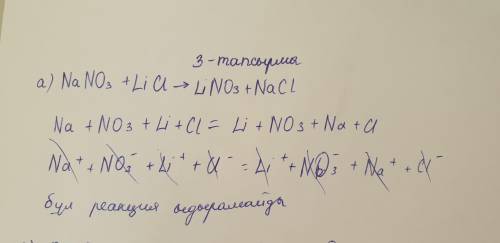 3-тапсырма
а) NaNO₃ + LiCl → LiNO₃ + NaCl
Na + NO₃ + Li + Cl = Li + NO₃ + Na + Cl
Na⁺ + NO₃⁻ + Li⁺ + Cl⁻ = Li⁺ + NO₃⁻ + Na⁺ + Cl⁻
бұл реакция